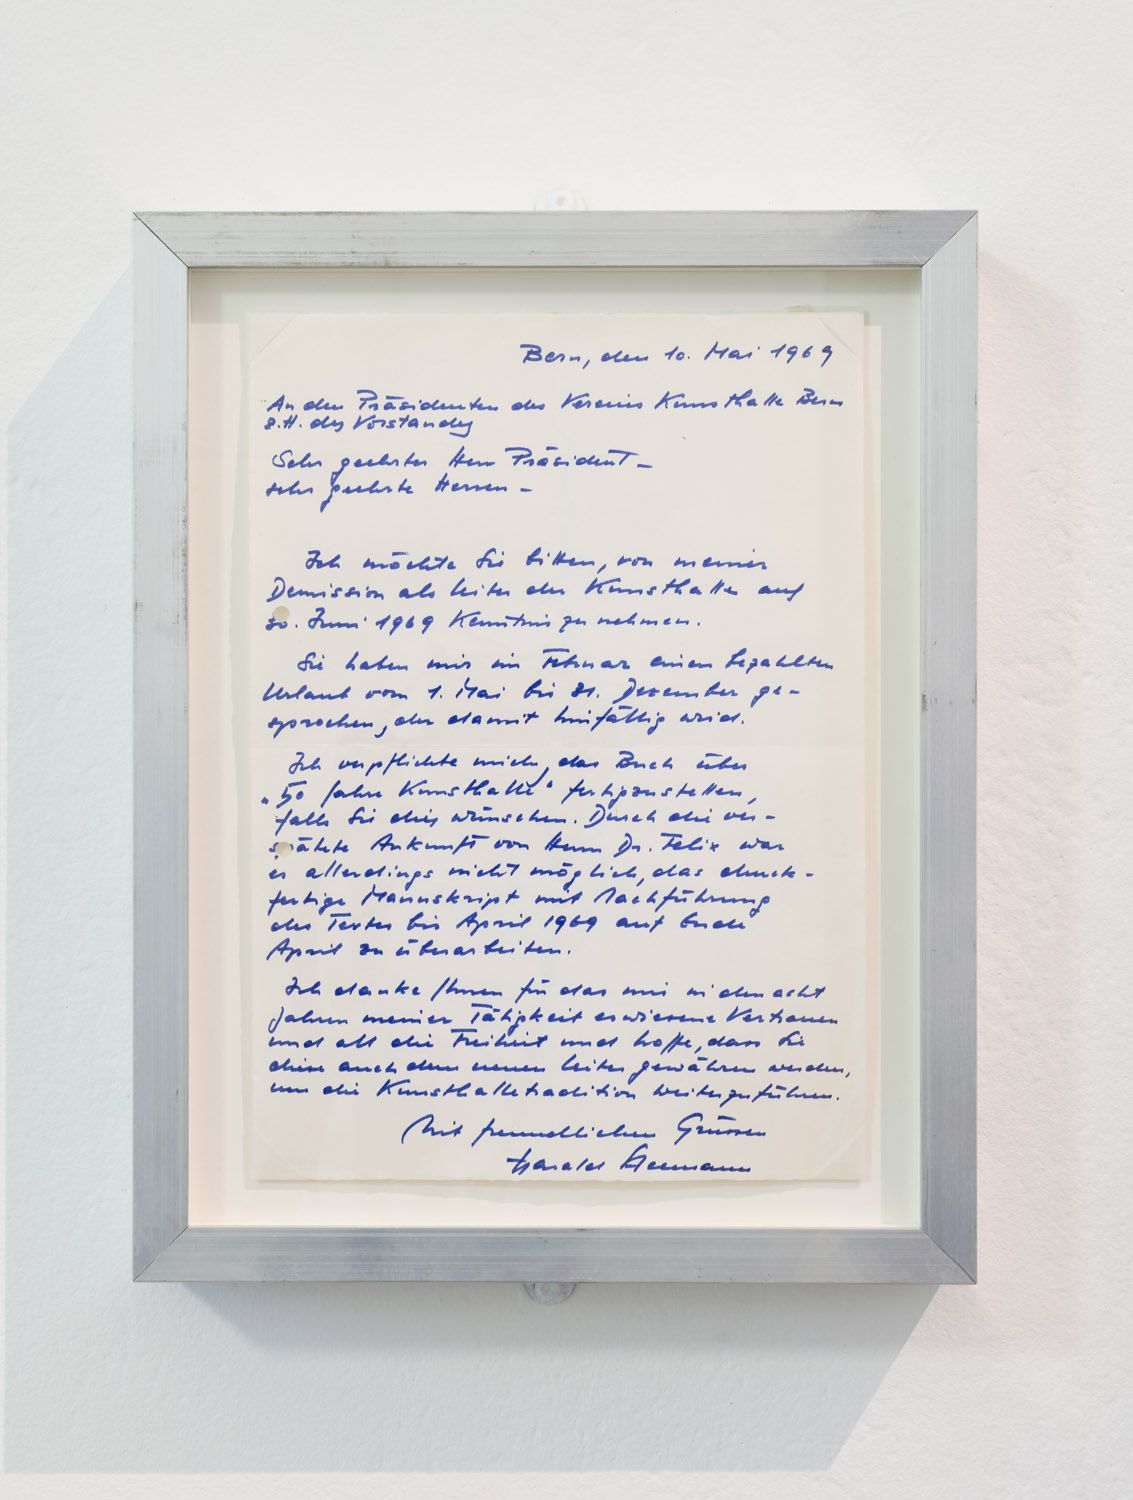 Bern, den 10. Mai 1969
An den Präsidenten des Vereins Kunsthalle Bern
z.H. des Vorstandes
Sehr geehrter Herr Präsident –
sehr geehrte Herren –
Ich möchte Sie bitten, von meiner
Demission als Leiter der Kunsthalle auf
30. Juni 1969 Kenntnis zu nehmen.
Sie haben mir im Februar einen bezahlten
Urlaub vom 1. Mai bis 31. Dezember ge-
sprochen, der damit hinfällig wird.
Ich verpflichte mich, das Buch über
„50 Jahre Kunsthalle“ fertigzustellen,
falls Sie dies wünschen. Durch die ver-
spätete Ankunft von Herrn Dr. Felix war
es allerdings nicht möglich, das druck-
fertige Manuskript mit Nachführung
des Textes bis April 1969 auf Ende
April zu überarbeiten.
Ich danke Ihnen für das mir in den acht
Jahren meiner Tätigkeit erwiesene Vertrauen
und all die Freiheit und hoffe, dass Sie
diese auch dem neuen Leiter gewähren werden,
um die Kunsthalletradition weiterzuführen.
Mit freundlichen Grüssen
Harald Szeemann